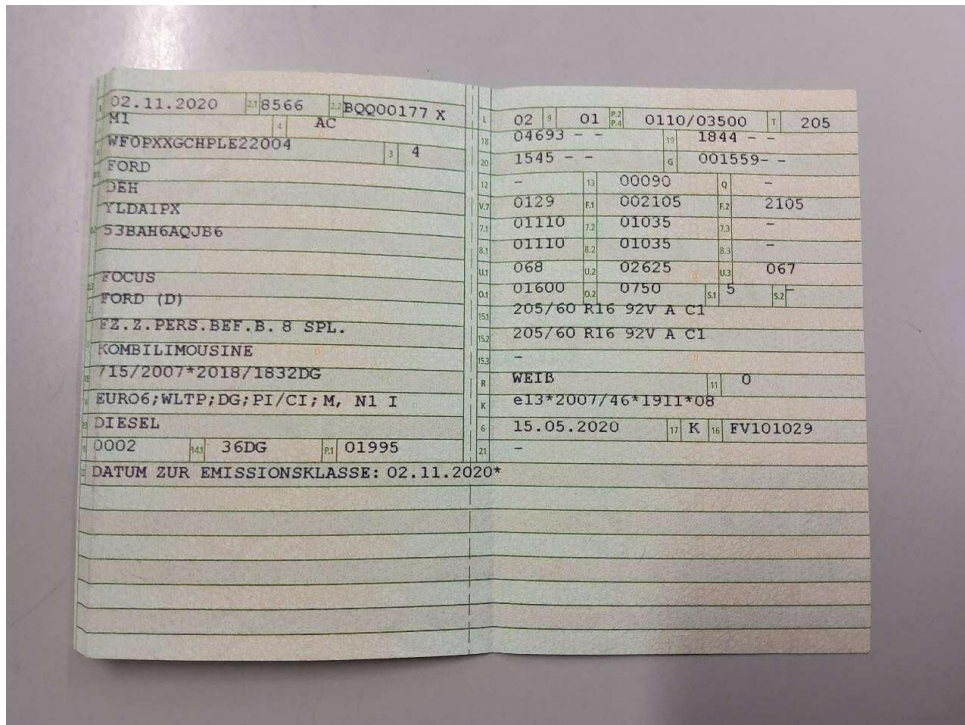 02.11.2020 2.1 8566 2.2 BQQ00177 X
M1 4 AC
WF0PXXGCHPLE22004 3 4
FORD
DEH
YLDA1PX
53BAH6AQJB6
FOCUS
FORD (D)
FZ.Z.PERS.BEF.B. 8 SPL.
KOMBILIMOUSINE
715/2007*2018/1832DG
EURO6;WLTP;DG;PI/CI;M, N1 I
DIESEL
0002 14.1 36DG P.1 01995
DATUM ZUR EMISSIONSKLASSE: 02.11.2020*
L 02 9 01 P.2 P.4 0110/03500 T 205
18 04693 - - 19 1844 - -
20 1545 - - G 001559- -
12 - 13 00090 Q -
V.7 0129 F.1 002105 F.2 2105
7.1 01110 7.2 01035 7.3 -
8.1 01110 8.2 01035 8.3 -
U.1 068 U.2 02625 U.3 067
O.1 01600 O.2 0750 S.1 5 S.2 -
15.1 205/60 R16 92V A C1
15.2 205/60 R16 92V A C1
15.3 -
R WEIß 11 0
K e13*2007/46*1911*08
6 15.05.2020 17 K 16 FV101029
21 -